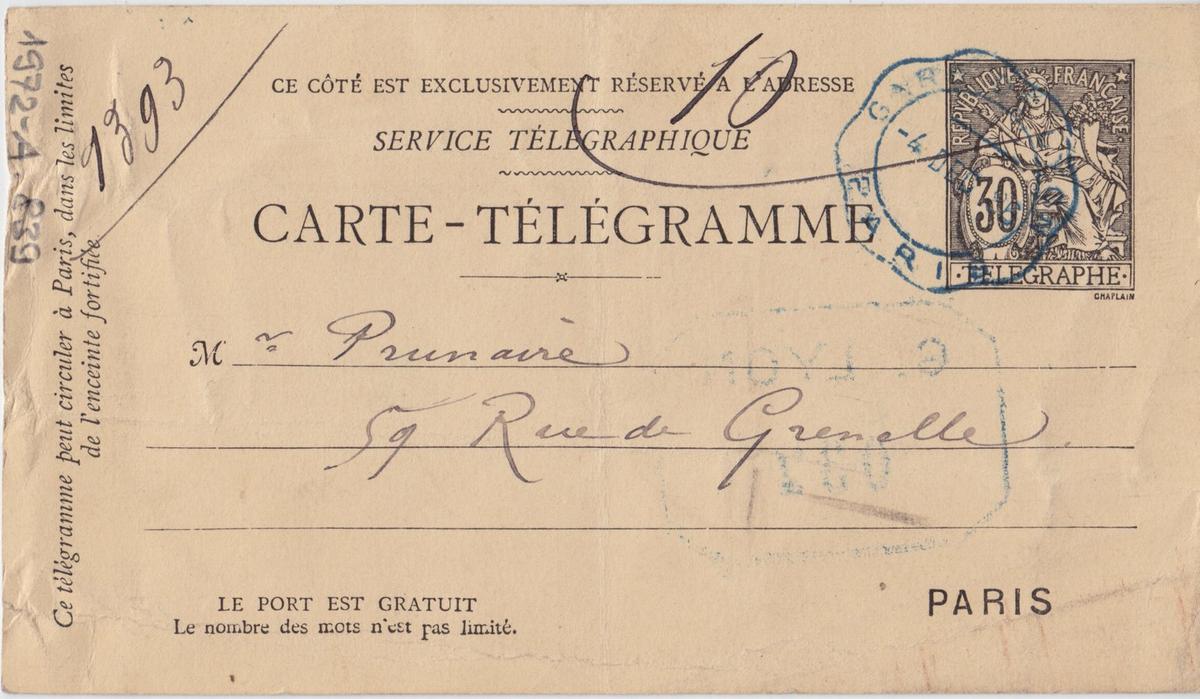 CE CÔTÉ EST EXCLUSIVEMENT RÉSERVÉ A L'ADRESSE
SERVICE TÉLÉGRAPHIQUE
CARTE-TÉLÉGRAMME
10
RÉPUBLIQUE FRANÇAISE
30
·TELEGRAPHE·
CHAPLAIN
GARE
-4 DEC
PARIS
Mr Prunaire
59 Rue de Grenelle
LE PORT EST GRATUIT
Le nombre des mots n'est pas limité.
PARIS
Ce télégramme peut circuler à Paris, dans les limites
de l'enceinte fortifiée
1393
1972-A.839